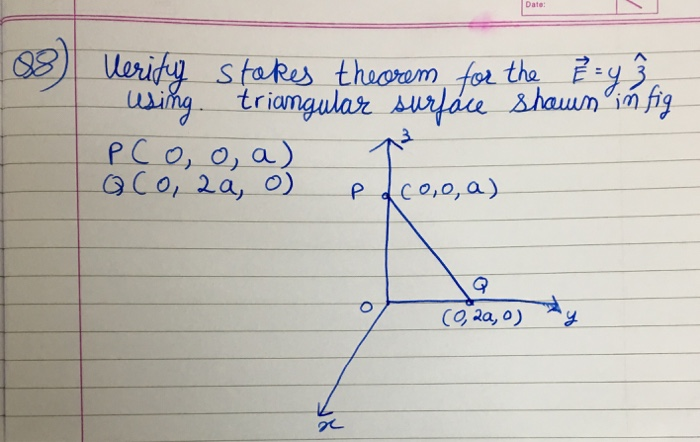 Date:
Q8) Verify stokes theorem for the E⃗ = y ẑ
using. triangular surface shown in fig
P( 0, 0, a)
Q(0, 2a, 0)
z
P (0,0,a)
Q
O
(0,2a,0) y
x